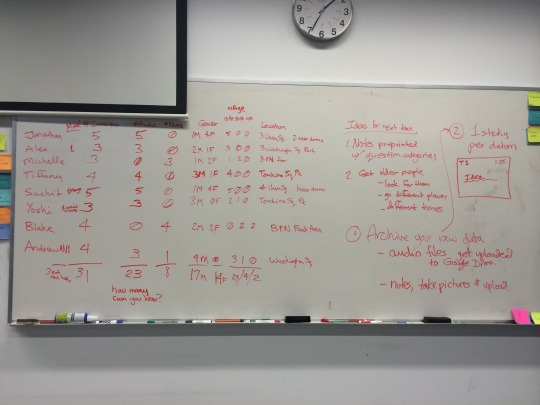 # Interviews # Audio Gender Age Location
Jonathan 5 5 0 1M 4F 5 0 0
Alex 3 3 0 2M 1F 3 0 0
Michelle 3 0 3 1M 2F 1 2 0
Tiffany 4 4 0 3M 1F 4 0 0 Tompkins Sq. Pk
5 5 0 1M 4F 5 0 0
Yoshi 3 3 0 3M 0F 2 1 0 Tompkins Sq. Pk
Blake 4 0 4 2M 2F 0 2 2
Andrew 4 3 1 4M 0F 3 1 0 Washington Sq.
31 23 8 17M 14F 23/6/2
how many
can you hear?
Ideas for next time
1. Notes preprinted
w/ question categories
2. Get older people
- look for them
- go different places
- different times
② 1 sticky
per datum
Idea
① Archive your raw data
- audio files get uploaded
to Google Drive
- notes, take pictures & upload